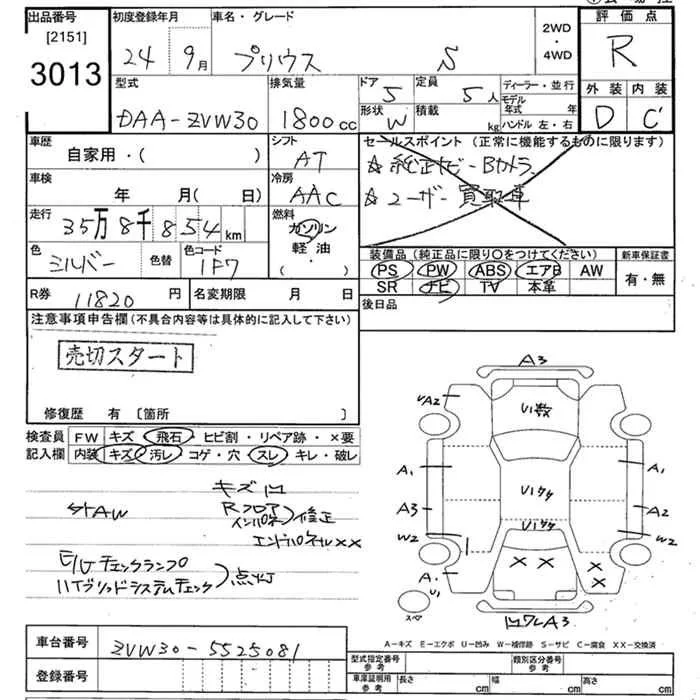 出品番号 初度登録年月 車名・グレード 2WD・4WD 評価点
[2151]
3013 24 9月 プリウス S R
型式 排気量 ドア 5 定員 5人 ディーラー・並行 外装 内装
DAA-ZVW30 1800cc 形状 W 積載 kg モデル年式 年 ハンドル 左・右 D C
車歴 自家用・( ) シフト AT セールスポイント (正常に機能するものに限ります)
☆純正ナビ-Bカメラ
車検 年 月( 日) 冷房 AAC ☆ユーザー買取車
走行 35万8千854km 燃料 ガソリン
軽油・( )
色 シルバー 色替 色コード 1F7 装備品 (純正品に限り○をつけてください) 新車保証書
PS PW ABS エアB AW 有・無
R券 11820円 名変期限 月 日 SR ナビ TV 本革
後日品
注意事項申告欄(不具合内容等は具体的に記入して下さい)
売切スタート
修復歴 有 〔箇所 〕
検査員 FW キズ 飛石 ヒビ割・リペア跡・×要
記入欄 内装 キズ 汚レ コゲ・穴 スレ キレ・破レ
キズ凹
Rフロア
インパネ 修正
エンドパネルXX
E/Gチェックランプ
ハイブリッドシステムチェック 点灯
A3
A2
U1数
A1 A1
U1
A3 A2
W2 W2
XX
XX
A1
U1
スペア
A3
A-キズ E-エクボ U-凹み W-補修跡 S-サビ C-腐食 XX-交換済
車台番号 ZVW30-5525081
登録番号
型式指定番号 参考 類別区分番号 参考
車庫証明用 参考 長さ cm 幅 cm 高さ cm